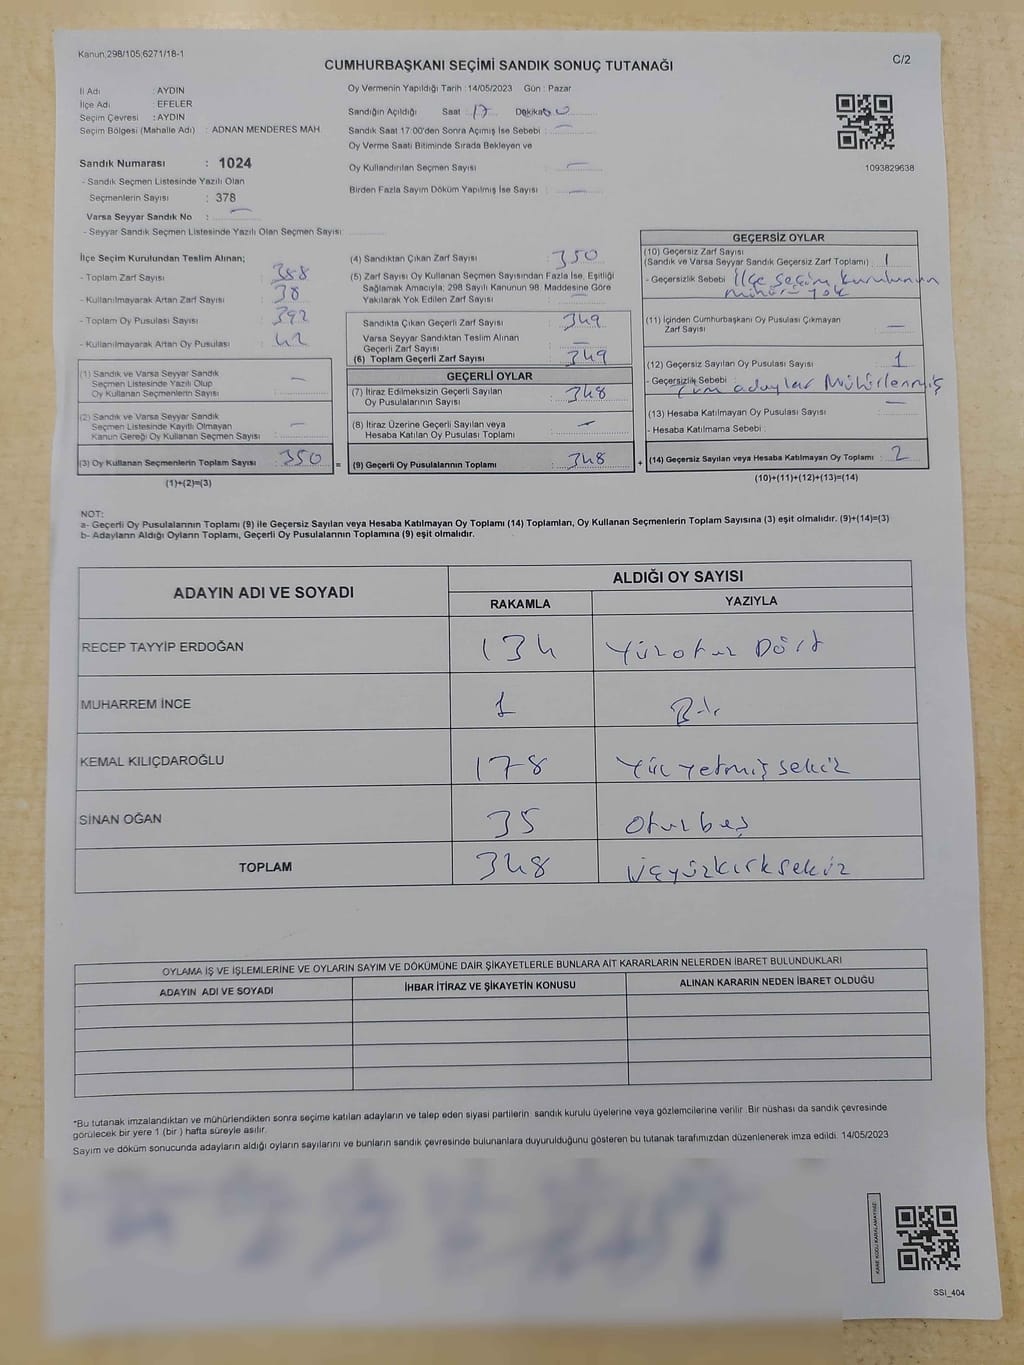 Kanun:298/105,6271/18-1
C/2
CUMHURBAŞKANI SEÇİMİ SANDIK SONUÇ TUTANAĞI
İl Adı : AYDIN
İlçe Adı : EFELER
Seçim Çevresi : AYDIN
Seçim Bölgesi (Mahalle Adı) : ADNAN MENDERES MAH.
Sandık Numarası : 1024
- Sandık Seçmen Listesinde Yazılı Olan
Seçmenlerin Sayısı : 378
Varsa Seyyar Sandık No : —
- Seyyar Sandık Seçmen Listesinde Yazılı Olan Seçmen Sayısı:
Oy Vermenin Yapıldığı Tarih : 14/05/2023 Gün : Pazar
Sandığın Açıldığı Saat : 17 Dakika
Sandık Saat 17:00'den Sonra Açımış İse Sebebi : —
Oy Verme Saati Bitiminde Sırada Bekleyen ve
Oy Kullandırılan Seçmen Sayısı : —
Birden Fazla Sayım Döküm Yapılmış İse Sayısı : —
1093829638
İlçe Seçim Kurulundan Teslim Alınan;
- Toplam Zarf Sayısı : 388
- Kullanılmayarak Artan Zarf Sayısı : 38
- Toplam Oy Pusulası Sayısı : 392
- Kullanılmayarak Artan Oy Pusulası : 42
(1) Sandık ve Varsa Seyyar Sandık
Seçmen Listesinde Yazılı Olup
Oy Kullanan Seçmenlerin Sayısı : —
(2) Sandık ve Varsa Seyyar Sandık
Seçmen Listesinde Kayıtlı Olmayan
Kanun Gereği Oy Kullanan Seçmen Sayısı : —
(3) Oy Kullanan Seçmenlerin Toplam Sayısı : 350
(1)+(2)=(3)
(4) Sandıktan Çıkan Zarf Sayısı : 350
(5) Zarf Sayısı Oy Kullanan Seçmen Sayısından Fazla İse, Eşitliği
Sağlamak Amacıyla; 298 Sayılı Kanunun 98. Maddesine Göre
Yakılarak Yok Edilen Zarf Sayısı : —
Sandıkta Çıkan Geçerli Zarf Sayısı : 349
Varsa Seyyar Sandıktan Teslim Alınan
Geçerli Zarf Sayısı : —
(6) Toplam Geçerli Zarf Sayısı : 349
GEÇERLİ OYLAR
(7) İtiraz Edilmeksizin Geçerli Sayılan
Oy Pusulalarının Sayısı : 348
(8) İtiraz Üzerine Geçerli Sayılan veya
Hesaba Katılan Oy Pusulası Toplamı : —
= (9) Geçerli Oy Pusulalarının Toplamı : 348 +
GEÇERSİZ OYLAR
(10) Geçersiz Zarf Sayısı
(Sandık ve Varsa Seyyar Sandık Geçersiz Zarf Toplamı) : 1
- Geçersizlik Sebebi : İlçe seçim kurulunun
mührü yok
(11) İçinden Cumhurbaşkanı Oy Pusulası Çıkmayan
Zarf Sayısı : —
(12) Geçersiz Sayılan Oy Pusulası Sayısı : 1
- Geçersizlik Sebebi : Tüm adaylar Mühürlenmiş
(13) Hesaba Katılmayan Oy Pusulası Sayısı : —
- Hesaba Katılmama Sebebi :
(14) Geçersiz Sayılan veya Hesaba Katılmayan Oy Toplamı : 2
(10)+(11)+(12)+(13)=(14)
NOT:
a- Geçerli Oy Pusulalarının Toplamı (9) ile Geçersiz Sayılan veya Hesaba Katılmayan Oy Toplamı (14) Toplamları, Oy Kullanan Seçmenlerin Toplam Sayısına (3) eşit olmalıdır. (9)+(14)=(3)
b- Adayların Aldığı Oyların Toplamı, Geçerli Oy Pusulalarının Toplamına (9) eşit olmalıdır.
ADAYIN ADI VE SOYADI ALDIĞI OY SAYISI
RAKAMLA YAZIYLA
RECEP TAYYİP ERDOĞAN 134 Yüzotuz Dört
MUHARREM İNCE 1 Bir
KEMAL KILIÇDAROĞLU 178 Yüz yetmiş sekiz
SİNAN OĞAN 35 Otuz beş
TOPLAM 348 Üçyüzkırksekiz
OYLAMA İŞ VE İŞLEMLERİNE VE OYLARIN SAYIM VE DÖKÜMÜNE DAİR ŞİKAYETLERLE BUNLARA AİT KARARLARIN NELERDEN İBARET BULUNDUKLARI
ADAYIN ADI VE SOYADI İHBAR İTİRAZ VE ŞİKAYETİN KONUSU ALINAN KARARIN NEDEN İBARET OLDUĞU
*Bu tutanak imzalandıktan ve mühürlendikten sonra seçime katılan adayların ve talep eden siyasi partilerin sandık kurulu üyelerine veya gözlemcilerine verilir. Bir nüshası da sandık çevresinde
görülecek bir yere 1 (bir ) hafta süreyle asılır.
Sayım ve döküm sonucunda adayların aldığı oyların sayılarını ve bunların sandık çevresinde bulunanlara duyurulduğunu gösteren bu tutanak tarafımızdan düzenlenerek imza edildi. 14/05/2023
KARE KODU KARALAMAYINIZ!
SSI_404